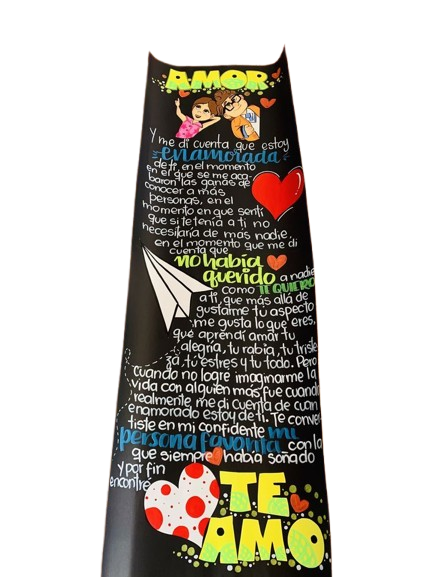 AMOR
Y me di cuenta que estoy
enamorada
de ti, en el momento
en el que se me aca-
baron las ganas de
conocer a más
personas, en el
momento en que sentí
que si te tenía a ti no
necesitaría de más nadie,
en el momento que me di
cuenta que
no había
querido a nadie
como TE QUIERO
a ti, que más allá de
gustarme tu aspecto
me gusta lo que eres,
que aprendí amar tu
alegría, tu rabia, tu triste
za, tu estres y tu todo. Pero
cuando no logre imaginarme la
vida con alguien más, fue cuando
realmente me di cuenta de cuan
enamorado estoy de ti. Te conver
tiste en mi confidente mi
persona favorita con la
que siempre había soñado
y por fin
encontré
TE
AMO